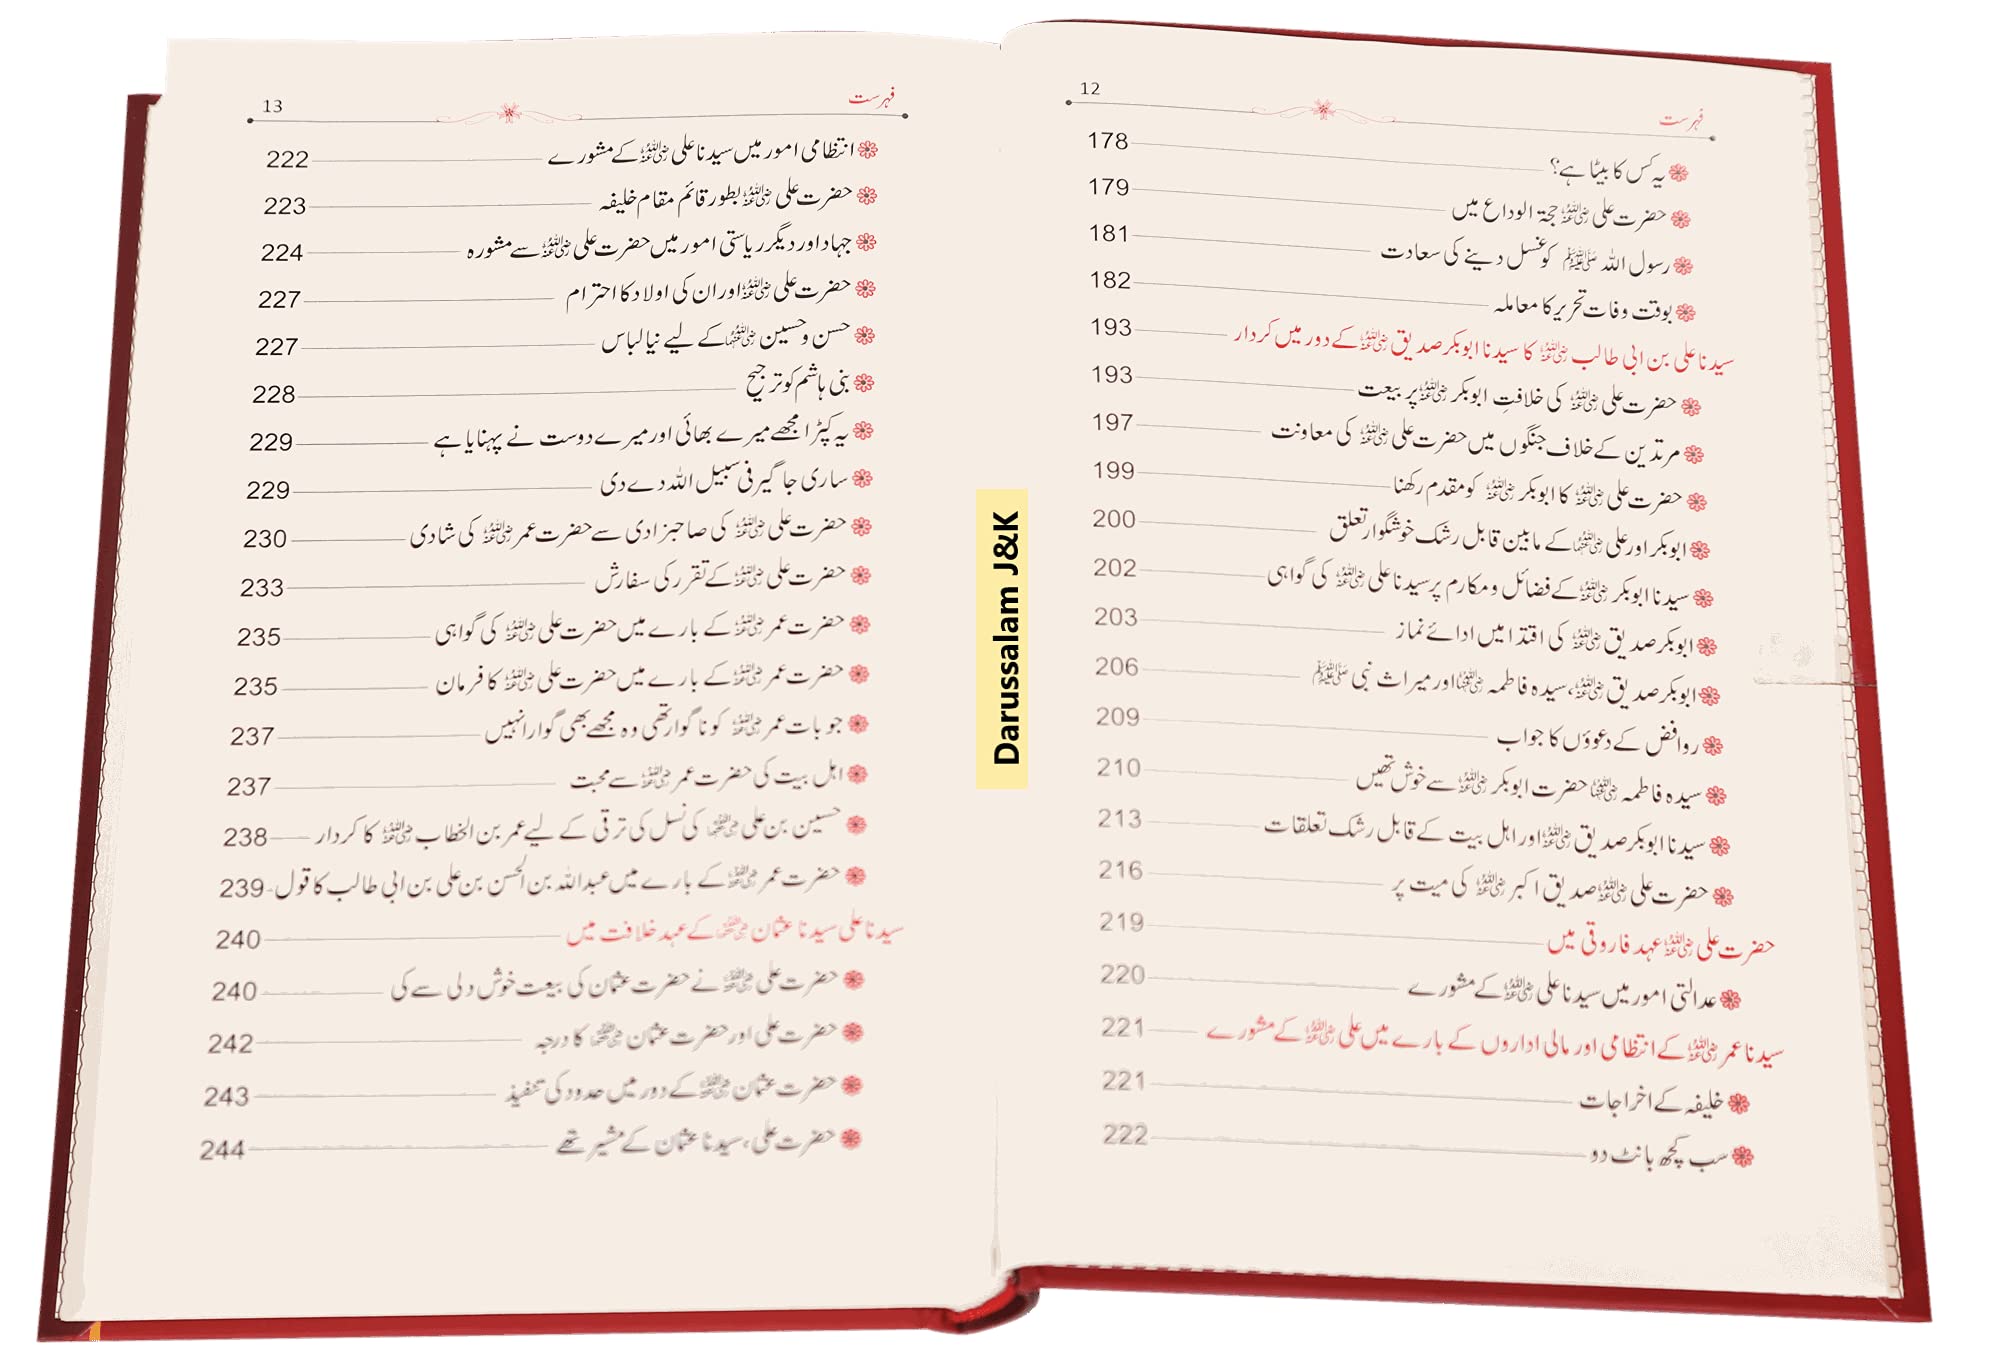 فہرست 12
یہ کس کا بیٹا ہے؟ 178
حضرت علی رضی اللہ عنہ حجۃ الوداع میں 179
رسول اللہ صلی اللہ علیہ وسلم کو غسل دینے کی سعادت 181
بوقت وفات تحریر کا معاملہ 182
سیدنا علی بن ابی طالب رضی اللہ عنہ کا سیدنا ابوبکر صدیق رضی اللہ عنہ کے دور میں کردار 193
حضرت علی رضی اللہ عنہ کی خلافتِ ابوبکر رضی اللہ عنہ پر بیعت 193
مرتدین کے خلاف جنگوں میں حضرت علی رضی اللہ عنہ کی معاونت 197
حضرت علی رضی اللہ عنہ کا ابوبکر رضی اللہ عنہ کو مقدم رکھنا 199
ابوبکر اور علی رضی اللہ عنہما کے مابین قابل رشک خوشگوار تعلق 200
سیدنا ابوبکر رضی اللہ عنہ کے فضائل و مکارم پر سیدنا علی رضی اللہ عنہ کی گواہی 202
ابوبکر صدیق رضی اللہ عنہ کی اقتدا میں ادائے نماز 203
ابوبکر صدیق رضی اللہ عنہ، سیدہ فاطمہ رضی اللہ عنہا اور میراث نبی صلی اللہ علیہ وسلم 206
روافض کے دعوؤں کا جواب 209
سیدہ فاطمہ رضی اللہ عنہا حضرت ابوبکر رضی اللہ عنہ سے خوش تھیں 210
سیدنا ابوبکر صدیق رضی اللہ عنہ اور اہل بیت کے قابل رشک تعلقات 213
حضرت علی رضی اللہ عنہ صدیق اکبر رضی اللہ عنہ کی میت پر 216
حضرت علی رضی اللہ عنہ عہد فاروقی میں 219
عدالتی امور میں سیدنا علی رضی اللہ عنہ کے مشورے 220
سیدنا عمر رضی اللہ عنہ کے انتظامی اور مالی اداروں کے بارے میں علی رضی اللہ عنہ کے مشورے 221
خلیفہ کے اخراجات 221
سب کچھ بانٹ دو 222
Darussalam J&K
فہرست 13
انتظامی امور میں سیدنا علی رضی اللہ عنہ کے مشورے 222
حضرت علی رضی اللہ عنہ بطور قائم مقام خلیفہ 223
جہاد اور دیگر ریاستی امور میں حضرت علی رضی اللہ عنہ سے مشورہ 224
حضرت علی رضی اللہ عنہ اور ان کی اولاد کا احترام 227
حسن و حسین رضی اللہ عنہما کے لیے نیا لباس 227
بنی ہاشم کو ترجیح 228
یہ کپڑا مجھے میرے بھائی اور میرے دوست نے پہنایا ہے 229
ساری جاگیر فی سبیل اللہ دے دی 229
حضرت علی رضی اللہ عنہ کی صاحبزادی سے حضرت عمر رضی اللہ عنہ کی شادی 230
حضرت علی رضی اللہ عنہ کے تقرر کی سفارش 233
حضرت عمر رضی اللہ عنہ کے بارے میں حضرت علی رضی اللہ عنہ کی گواہی 235
حضرت عمر رضی اللہ عنہ کے بارے میں حضرت علی رضی اللہ عنہ کا فرمان 235
جو بات عمر رضی اللہ عنہ کو ناگوار تھی وہ مجھے بھی گوارا نہیں 237
اہل بیت کی حضرت عمر رضی اللہ عنہ سے محبت 237
حسین بن علی رضی اللہ عنہما کی نسل کی ترقی کے لیے عمر بن الخطاب رضی اللہ عنہ کا کردار 238
حضرت عمر رضی اللہ عنہ کے بارے میں عبداللہ بن الحسن بن علی بن ابی طالب کا قول 239
سیدنا علی سیدنا عثمان رضی اللہ عنہما کے عہد خلافت میں 240
حضرت علی رضی اللہ عنہ نے حضرت عثمان کی بیعت خوش دلی سے کی 240
حضرت علی اور حضرت عثمان رضی اللہ عنہما کا درجہ 242
حضرت عثمان رضی اللہ عنہ کے دور میں حدود کی تنفیذ 243
حضرت علی، سیدنا عثمان کے مشیر تھے 244